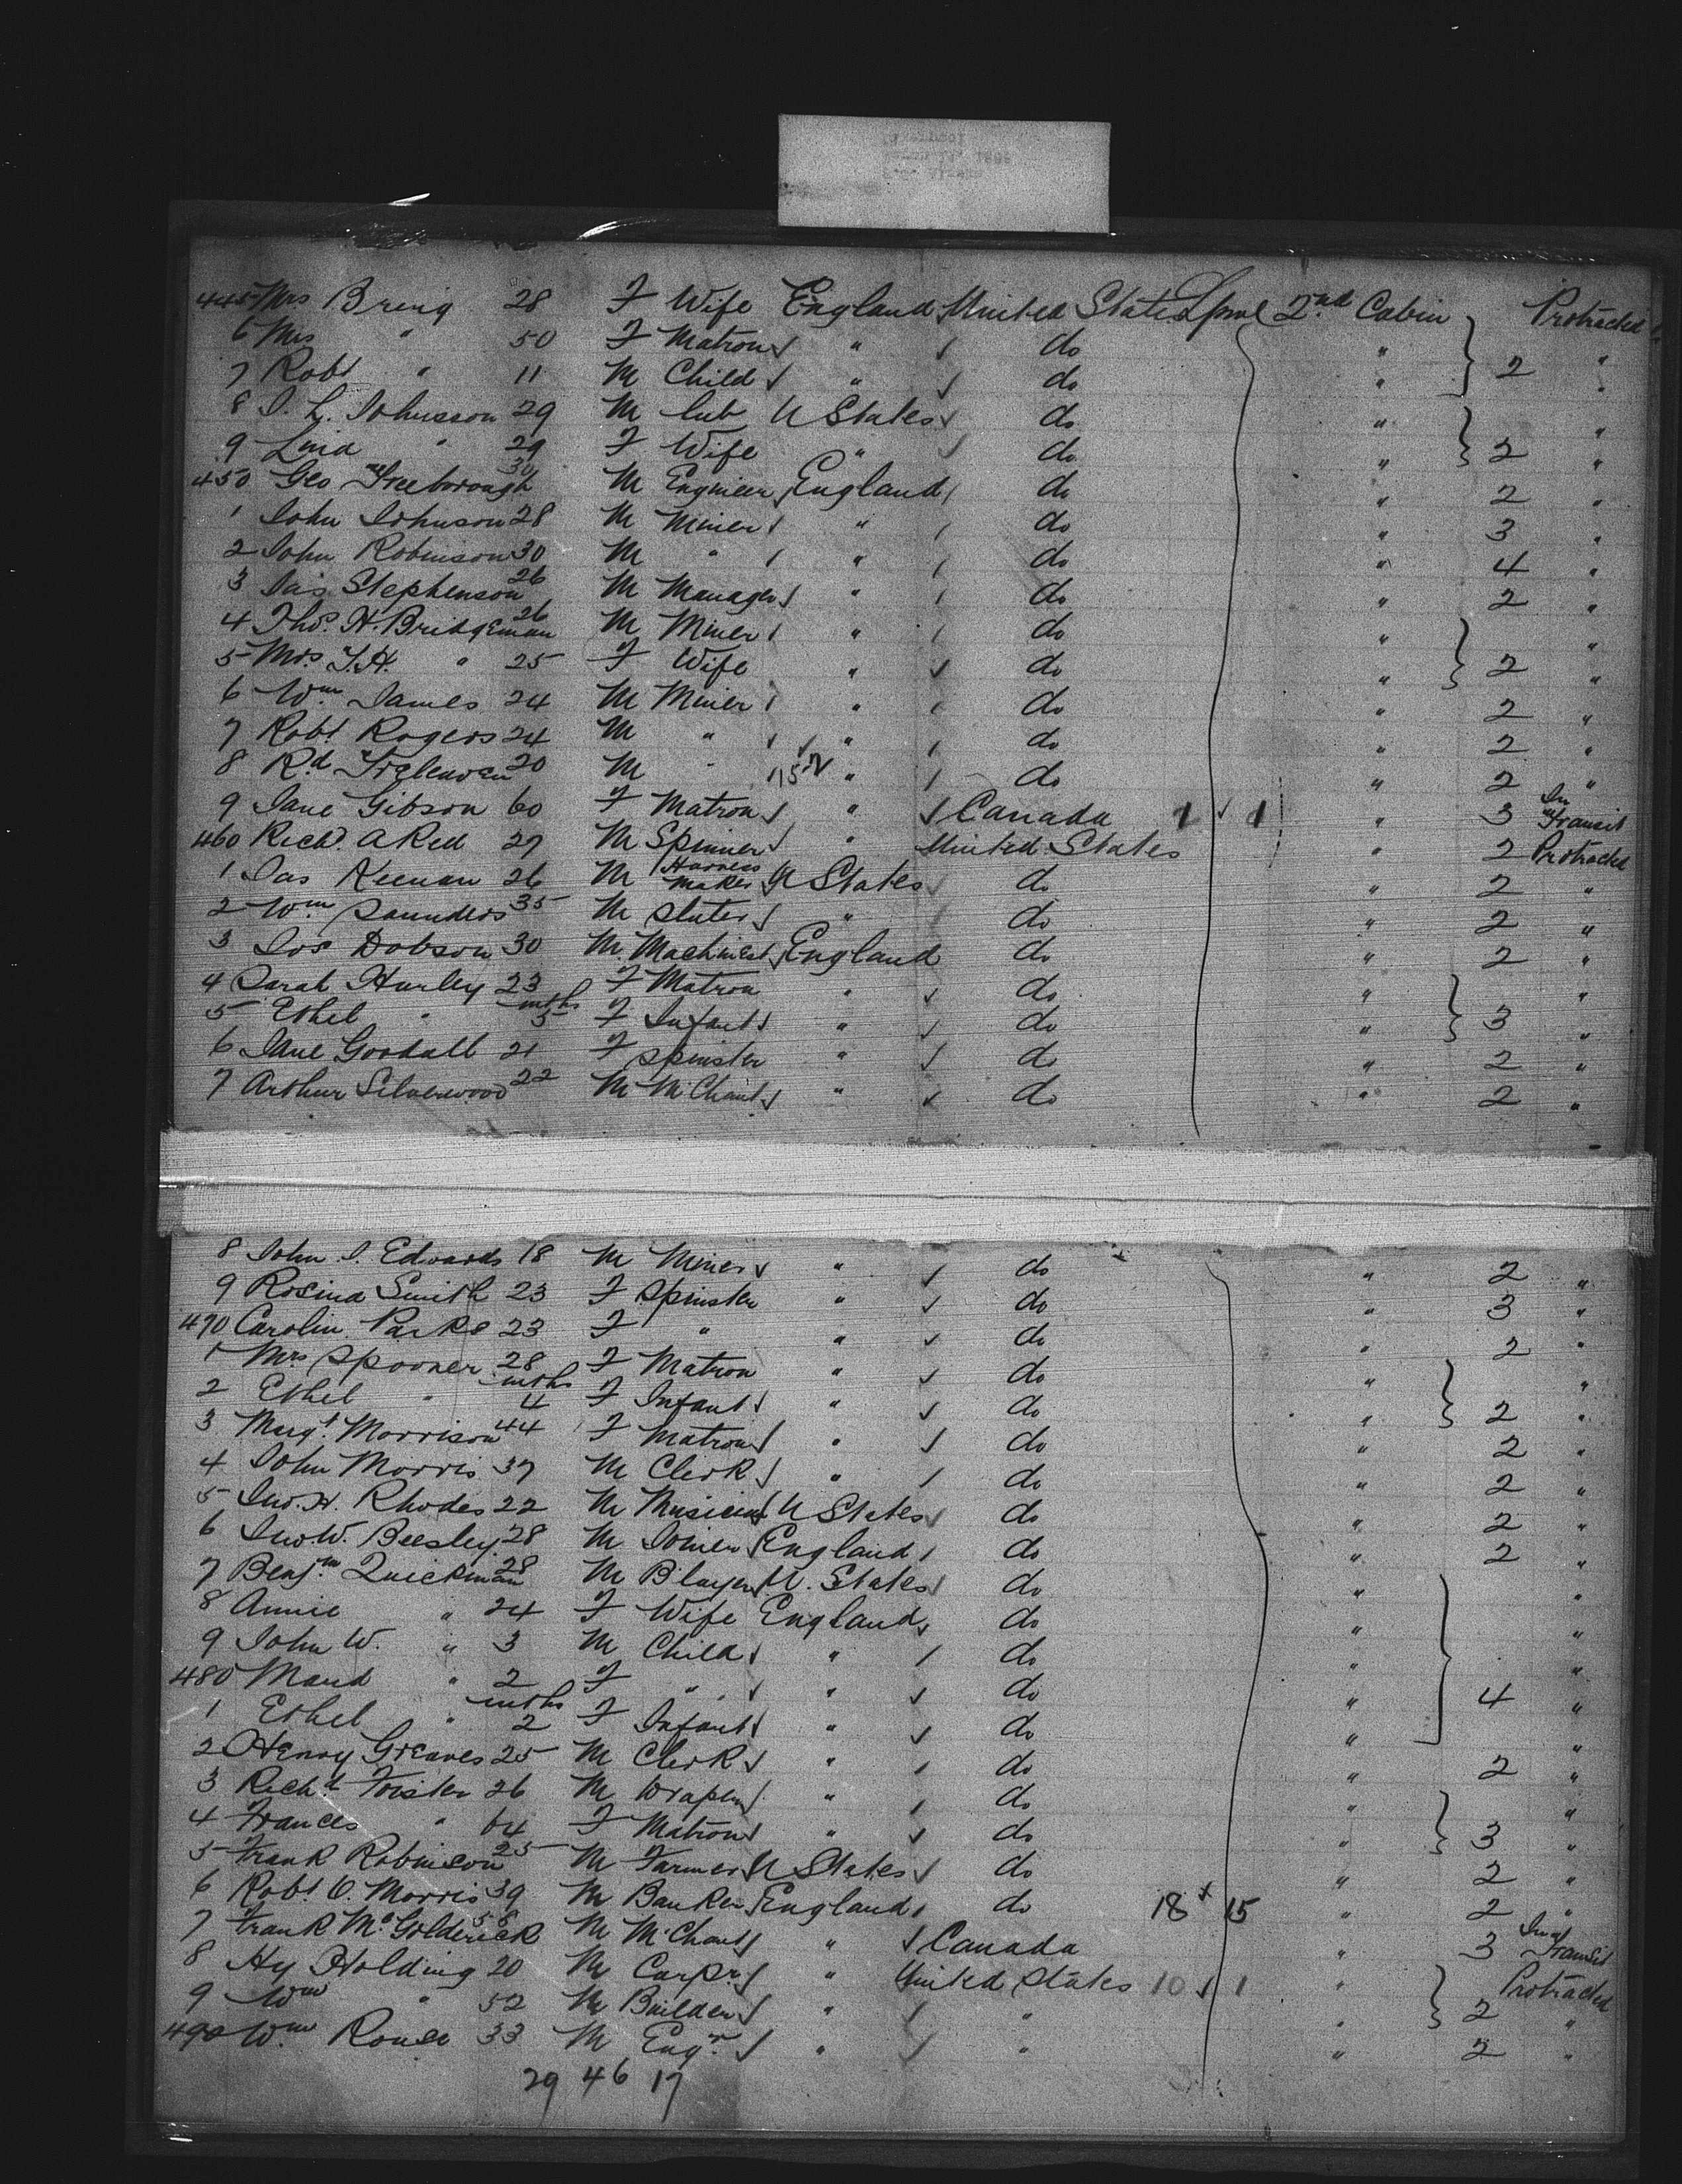 445 Mrs Breng 28 F Wife England United States Lpool 2nd Cabin Protracted
6 Mrs " 50 F Matron " do " "
7 Robt " 11 M Child " do " 2 "
8 J. L. Johnson 29 M U States do " "
9 " 29 F Wife " do " 2 "
450 Geo Freeborough 30 M Engineer England do " 2 "
1 John Johnson 28 M Miner " do " 3 "
2 John Robinson 30 M " " do " 4 "
3 Jas Stephenson 26 M Manager " do " 2 "
4 Thos. H. Bridgeman 26 M Miner " do " "
5 Mrs T.H. " 25 F Wife " do " 2 "
6 Wm James 24 M Miner " do " 2 "
7 Robt Rogers 24 M " " do " 2 "
8 Rd 20 M " " do " 2 "
9 Jane Gibson 60 F Matron " Canada 1 1 " 3 In Transit
460 Richd. A Red 27 M Spinner " United States " 2 Protracted
1 Jas Keenan 26 M Harness Maker U States do " 2 "
2 Wm Saunders 35 M " do " 2 "
3 Jos Dobson 30 M Machinest England do " 2 "
4 Sarah Hurley 23 F Matron " do " "
5 Ethel " mths 5 F Infant " do " 3 "
6 Jane Goodall 21 F Spinster " do " 2 "
7 Arthur Silverwood 22 M McChant " do " 2 "
8 John J. Edwards 18 M Miner " do " 2 "
9 Rosina Smith 23 F Spinster " do " 3 "
470 Carolin Parks 23 F " " do " 2 "
1 Mrs Spooner 28 F Matron " do " "
2 Ethel " mths 4 F Infant " do " 2 "
3 Margt. Morrison 44 F Matron " do " 2 "
4 John Morris 37 M Clerk " do " 2 "
5 Jno. H. Rhodes 22 M Musician U States do " 2 "
6 Jno. W. Beesley 28 M Joiner England do " 2 "
7 Benjm Quickman 28 M Blayer U. States do " "
8 Annie " 24 F Wife England do " "
9 John W. " 3 M Child " do " "
480 Maud " 2 F " " do " 4 "
1 Ethel " mths 2 F Infant " do " "
2 Henry Greaves 25 M Clerk " do " 2 "
3 Richd Foister 26 M Draper " do " "
4 Frances " 64 F Matron " do " 3 "
5 Frank Robinson 25 M Farmer U States do " 2 "
6 Robt O. Morris 39 M Banker England do 18 15 " 2 "
7 Frank McGolderick 58 M McChant " Canada " 3 In Transit
8 Hy Holding 20 M Carpr. " United States 10 1 " Protracted
9 Wm " 52 M Builder " " " 2 "
490 Wm. Rouse 33 M Engr. " " " 2 "
29 46 17